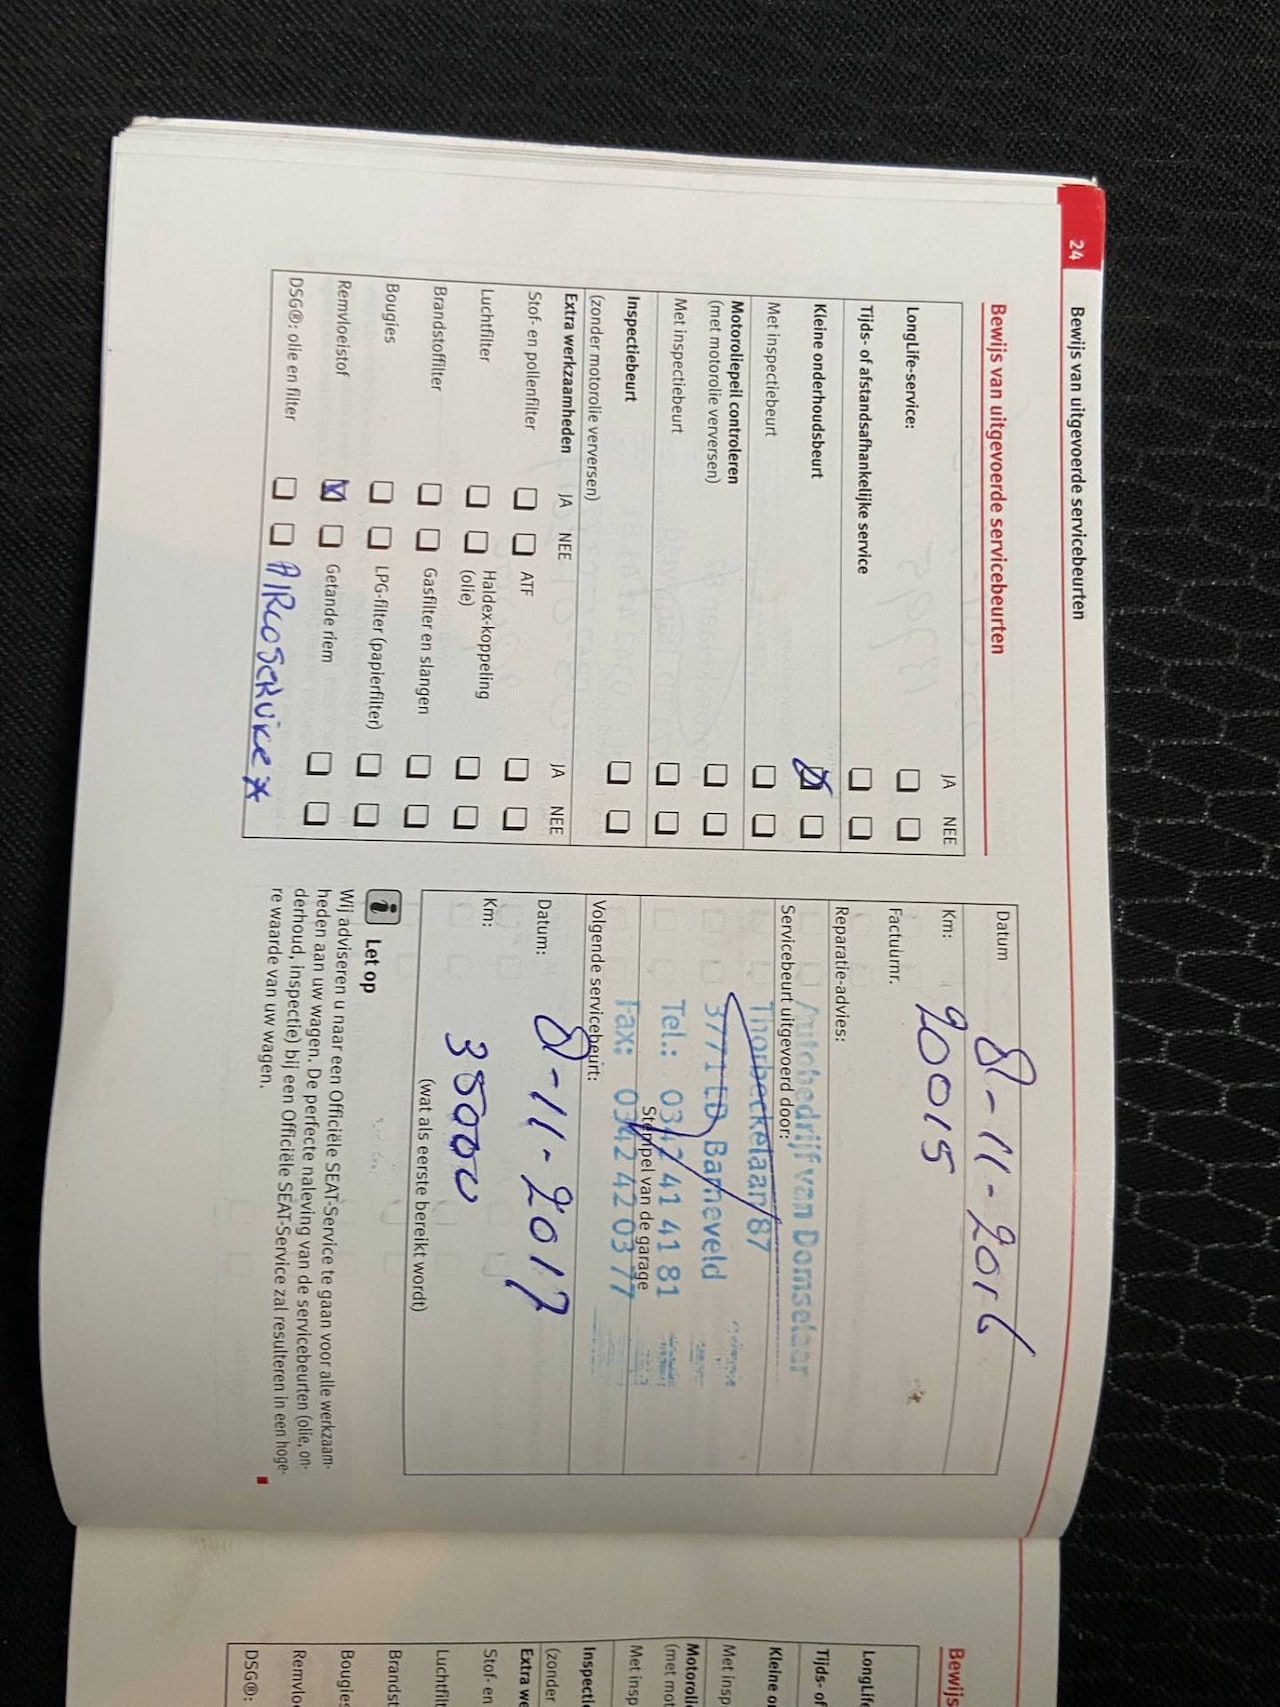 24
Bewijs van uitgevoerde servicebeurten
Bewijs van uitgevoerde servicebeurten
JA NEE
LongLife-service:
Tijds- of afstandsafhankelijke service
Kleine onderhoudsbeurt
Met inspectiebeurt
Motoroliepeil controleren
(met motorolie verversen)
Met inspectiebeurt
Inspectiebeurt
(zonder motorolie verversen)
Extra werkzaamheden JA NEE JA NEE
Stof- en pollenfilter ATF
Luchtfilter Haldex-koppeling
(olie)
Brandstoffilter Gasfilter en slangen
Bougies LPG-filter (papierfilter)
Remvloeistof Getande riem
DSG®: olie en filter
AIRCOSERVICE *
Datum 8-11-2016
Km: 20015
Factuurnr.
Reparatie-advies:
Servicebeurt uitgevoerd door:
Autobedrijf van Domselaar
Thorbeckelaan 87
3771 ED Barneveld
Tel.: 0342 41 41 81
Stempel van de garage
Fax: 0342 42 03 77
Volgende servicebeurt:
Datum: 8-11-2017
Km: 35000
(wat als eerste bereikt wordt)
i Let op
Wij adviseren u naar een Officiële SEAT-Service te gaan voor alle werkzaam-
heden aan uw wagen. De perfecte naleving van de servicebeurten (olie, on-
derhoud, inspectie) bij een Officiële SEAT-Service zal resulteren in een hoge-
re waarde van uw wagen.
Bewijs
LongLife
Tijds- of
Kleine o
Met insp
Motoroli
(met mot
Met insp
Inspectie
(zonder
Extra we
Stof- en
Luchtfilt
Brandst
Bougies
Remvlo
DSG®: